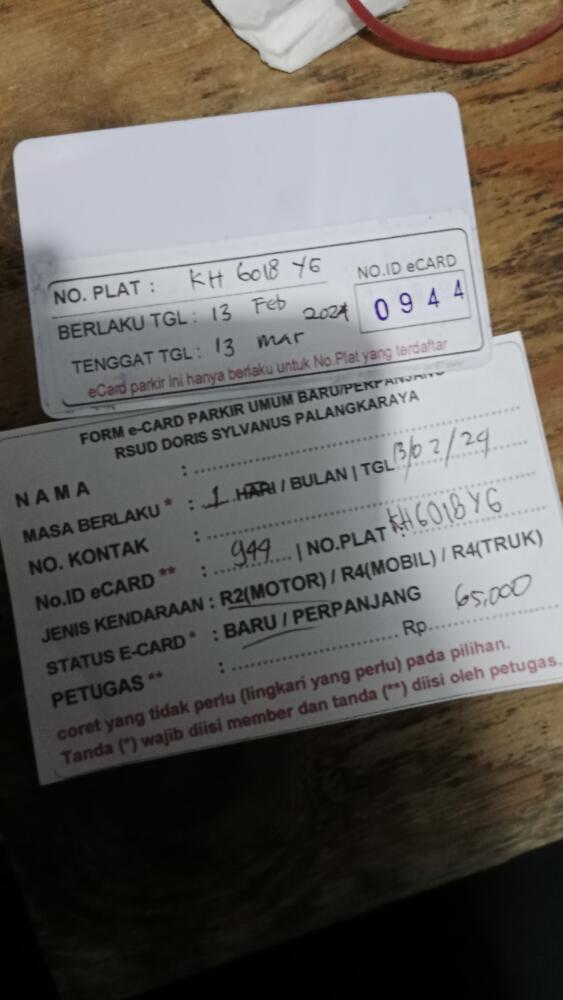 NO. PLAT : KH 6018 YG
NO.ID eCARD
BERLAKU TGL : 13 Feb 2024
0944
TENGGAT TGL : 13 mar
eCard parkir ini hanya berlaku untuk No.Plat yang terdaftar
FORM e-CARD PARKIR UMUM BARU/PERPANJANG
RSUD DORIS SYLVANUS PALANGKARAYA
NAMA : ....................
MASA BERLAKU * : 1 HARI / BULAN | TGL 13/02/24
NO. KONTAK : ....................
No.ID eCARD ** : 944 | NO.PLAT : KH 6018 YG
JENIS KENDARAAN : R2(MOTOR) / R4(MOBIL) / R4(TRUK)
STATUS E-CARD * : BARU / PERPANJANG
PETUGAS ** : .................... Rp. 65,000
coret yang tidak perlu (lingkari yang perlu) pada pilihan.
Tanda (*) wajib diisi member dan tanda (**) diisi oleh petugas.